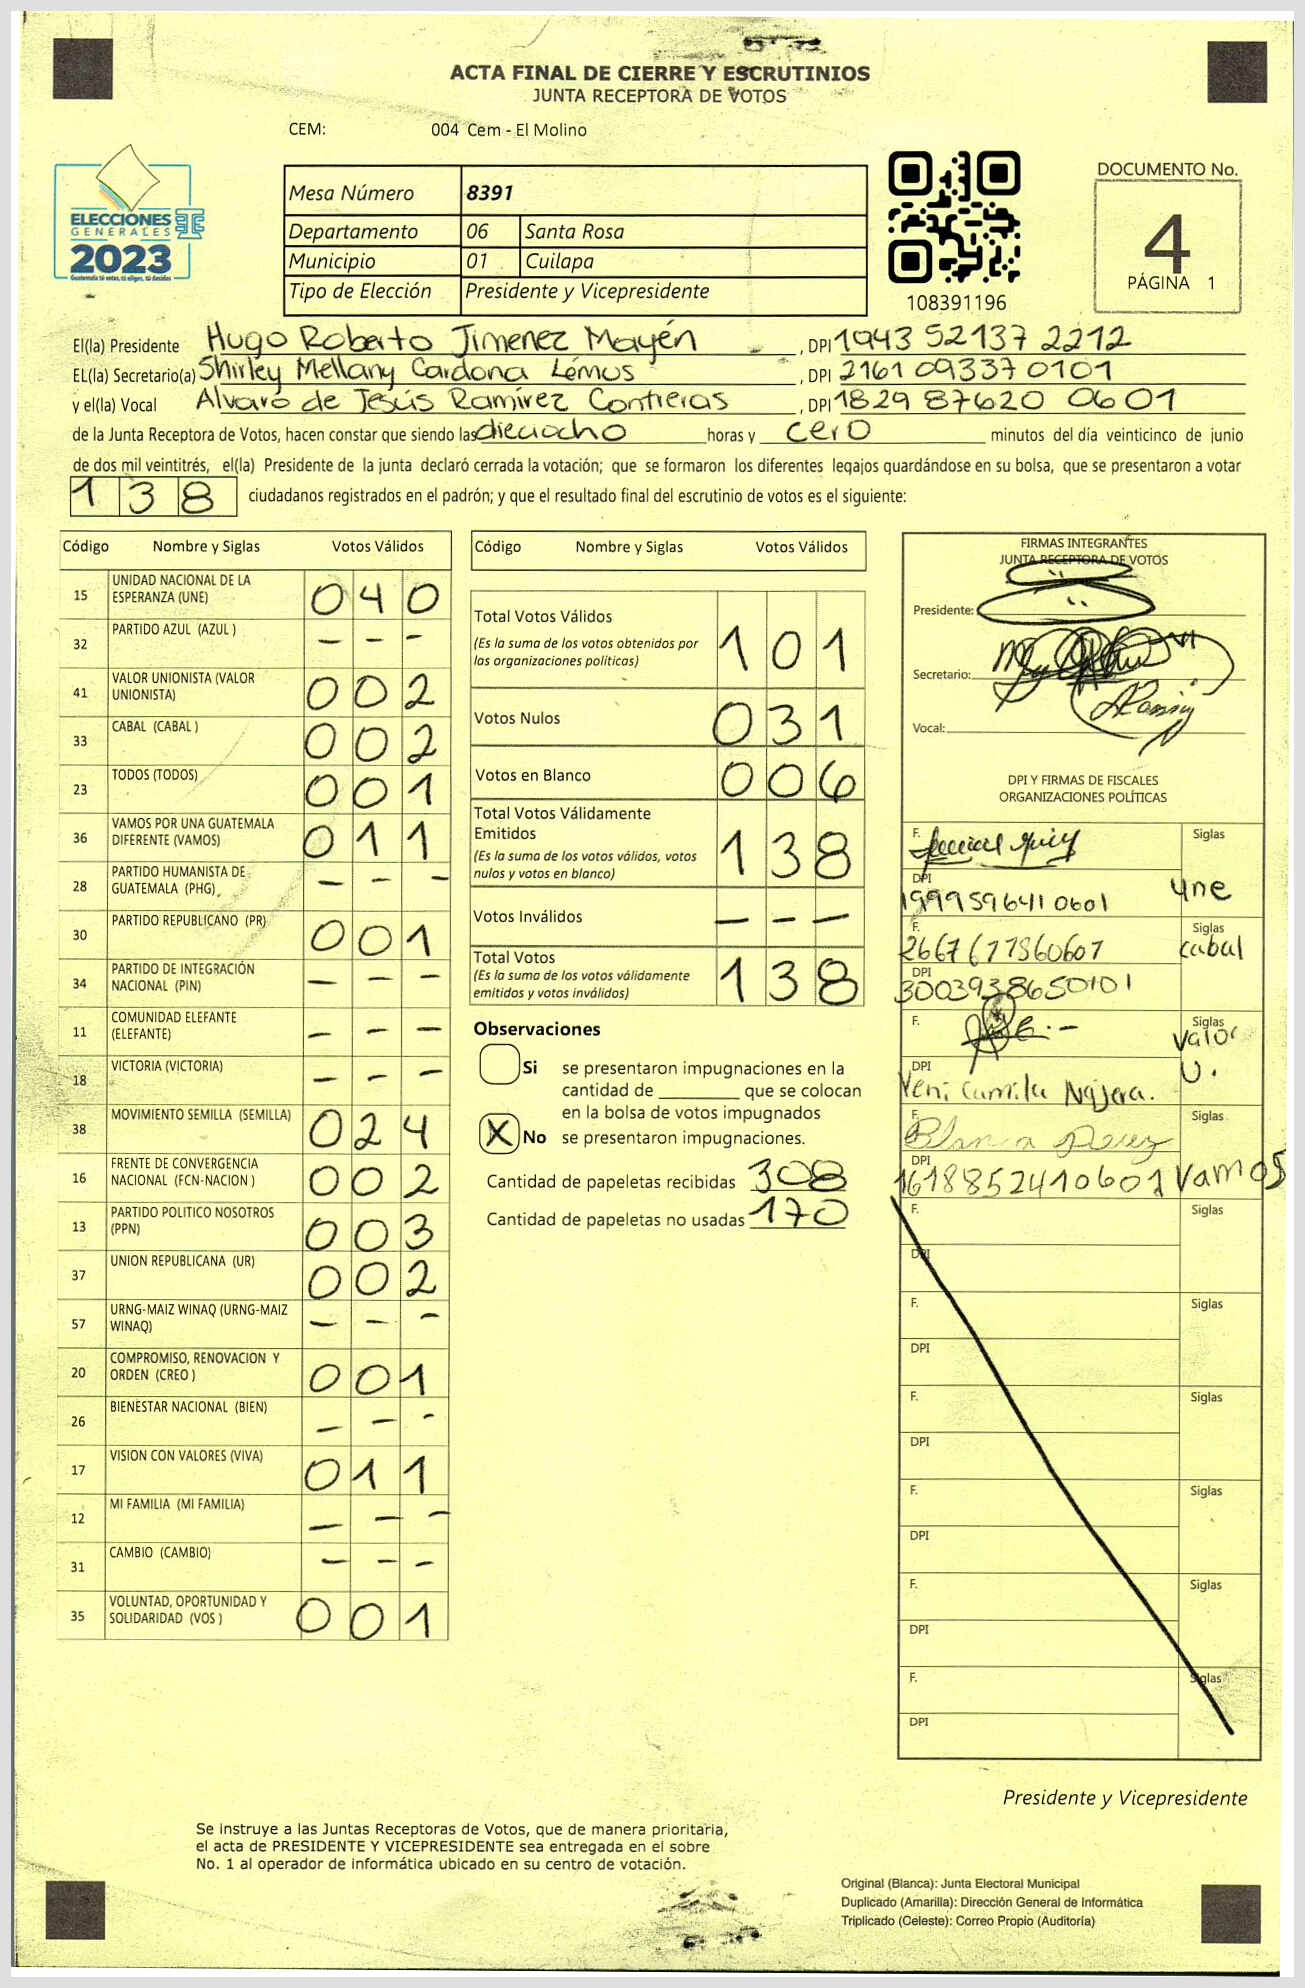 ACTA FINAL DE CIERRE Y ESCRUTINIOS
JUNTA RECEPTORA DE VOTOS
CEM: 004 Cem - El Molino
ELECCIONES
GENERALES
2023
Guatemala tú votas, tú eliges, tú decides
Mesa Número 8391
Departamento 06 Santa Rosa
Municipio 01 Cuilapa
Tipo de Elección Presidente y Vicepresidente
108391196
DOCUMENTO No.
4
PÁGINA 1
El(la) Presidente Hugo Roberto Jimenez Mayén , DPI 1943 52137 2212
EL(la) Secretario(a) Shirley Mellany Cardona Lémus , DPI 2161 09337 0101
y el(la) Vocal Alvaro de Jesús Ramírez Contreras , DPI 1829 87620 0601
de la Junta Receptora de Votos, hacen constar que siendo las dieciocho horas y cero minutos del día veinticinco de junio
de dos mil veintitrés, el(la) Presidente de la junta declaró cerrada la votación; que se formaron los diferentes legajos guardándose en su bolsa, que se presentaron a votar
138 ciudadanos registrados en el padrón; y que el resultado final del escrutinio de votos es el siguiente:
Código Nombre y Siglas Votos Válidos
15 UNIDAD NACIONAL DE LA ESPERANZA (UNE) 040
32 PARTIDO AZUL (AZUL ) - - -
41 VALOR UNIONISTA (VALOR UNIONISTA) 002
33 CABAL (CABAL ) 002
23 TODOS (TODOS) 001
36 VAMOS POR UNA GUATEMALA DIFERENTE (VAMOS) 011
28 PARTIDO HUMANISTA DE GUATEMALA (PHG) - - -
30 PARTIDO REPUBLICANO (PR) 001
34 PARTIDO DE INTEGRACIÓN NACIONAL (PIN) - - -
11 COMUNIDAD ELEFANTE (ELEFANTE) - - -
18 VICTORIA (VICTORIA) - - -
38 MOVIMIENTO SEMILLA (SEMILLA) 024
16 FRENTE DE CONVERGENCIA NACIONAL (FCN-NACION ) 002
13 PARTIDO POLITICO NOSOTROS (PPN) 003
37 UNION REPUBLICANA (UR) 002
57 URNG-MAIZ WINAQ (URNG-MAIZ WINAQ) - - -
20 COMPROMISO, RENOVACION Y ORDEN (CREO ) 001
26 BIENESTAR NACIONAL (BIEN) - - -
17 VISION CON VALORES (VIVA) 011
12 MI FAMILIA (MI FAMILIA) - - -
31 CAMBIO (CAMBIO) - - -
35 VOLUNTAD, OPORTUNIDAD Y SOLIDARIDAD (VOS ) 001
Código Nombre y Siglas Votos Válidos
Total Votos Válidos 101
(Es la suma de los votos obtenidos por
las organizaciones políticas)
Votos Nulos 031
Votos en Blanco 006
Total Votos Válidamente
Emitidos 138
(Es la suma de los votos válidos, votos
nulos y votos en blanco)
Votos Inválidos - - -
Total Votos 138
(Es la suma de los votos válidamente
emitidos y votos inválidos)
Observaciones
Si se presentaron impugnaciones en la
cantidad de ________ que se colocan
en la bolsa de votos impugnados
X No se presentaron impugnaciones.
Cantidad de papeletas recibidas 308
Cantidad de papeletas no usadas 170
FIRMAS INTEGRANTES
JUNTA RECEPTORA DE VOTOS
Presidente:
Secretario:
Vocal:
DPI Y FIRMAS DE FISCALES
ORGANIZACIONES POLÍTICAS
F. Siglas
DPI 1999596410601 une
F. 2667677860607 Siglas cabal
DPI 3003938650101
F. Siglas Valor
DPI Yeni Camila Najera. U.
F. Blanca Perez Siglas
DPI 1618852410601 Vamos
F. Siglas
DPI
F. Siglas
DPI
F. Siglas
DPI
F. Siglas
DPI
F. Siglas
DPI
F. Siglas
DPI
Presidente y Vicepresidente
Se instruye a las Juntas Receptoras de Votos, que de manera prioritaria,
el acta de PRESIDENTE Y VICEPRESIDENTE sea entregada en el sobre
No. 1 al operador de informática ubicado en su centro de votación.
Original (Blanca): Junta Electoral Municipal
Duplicado (Amarilla): Dirección General de Informática
Triplicado (Celeste): Correo Propio (Auditoría)